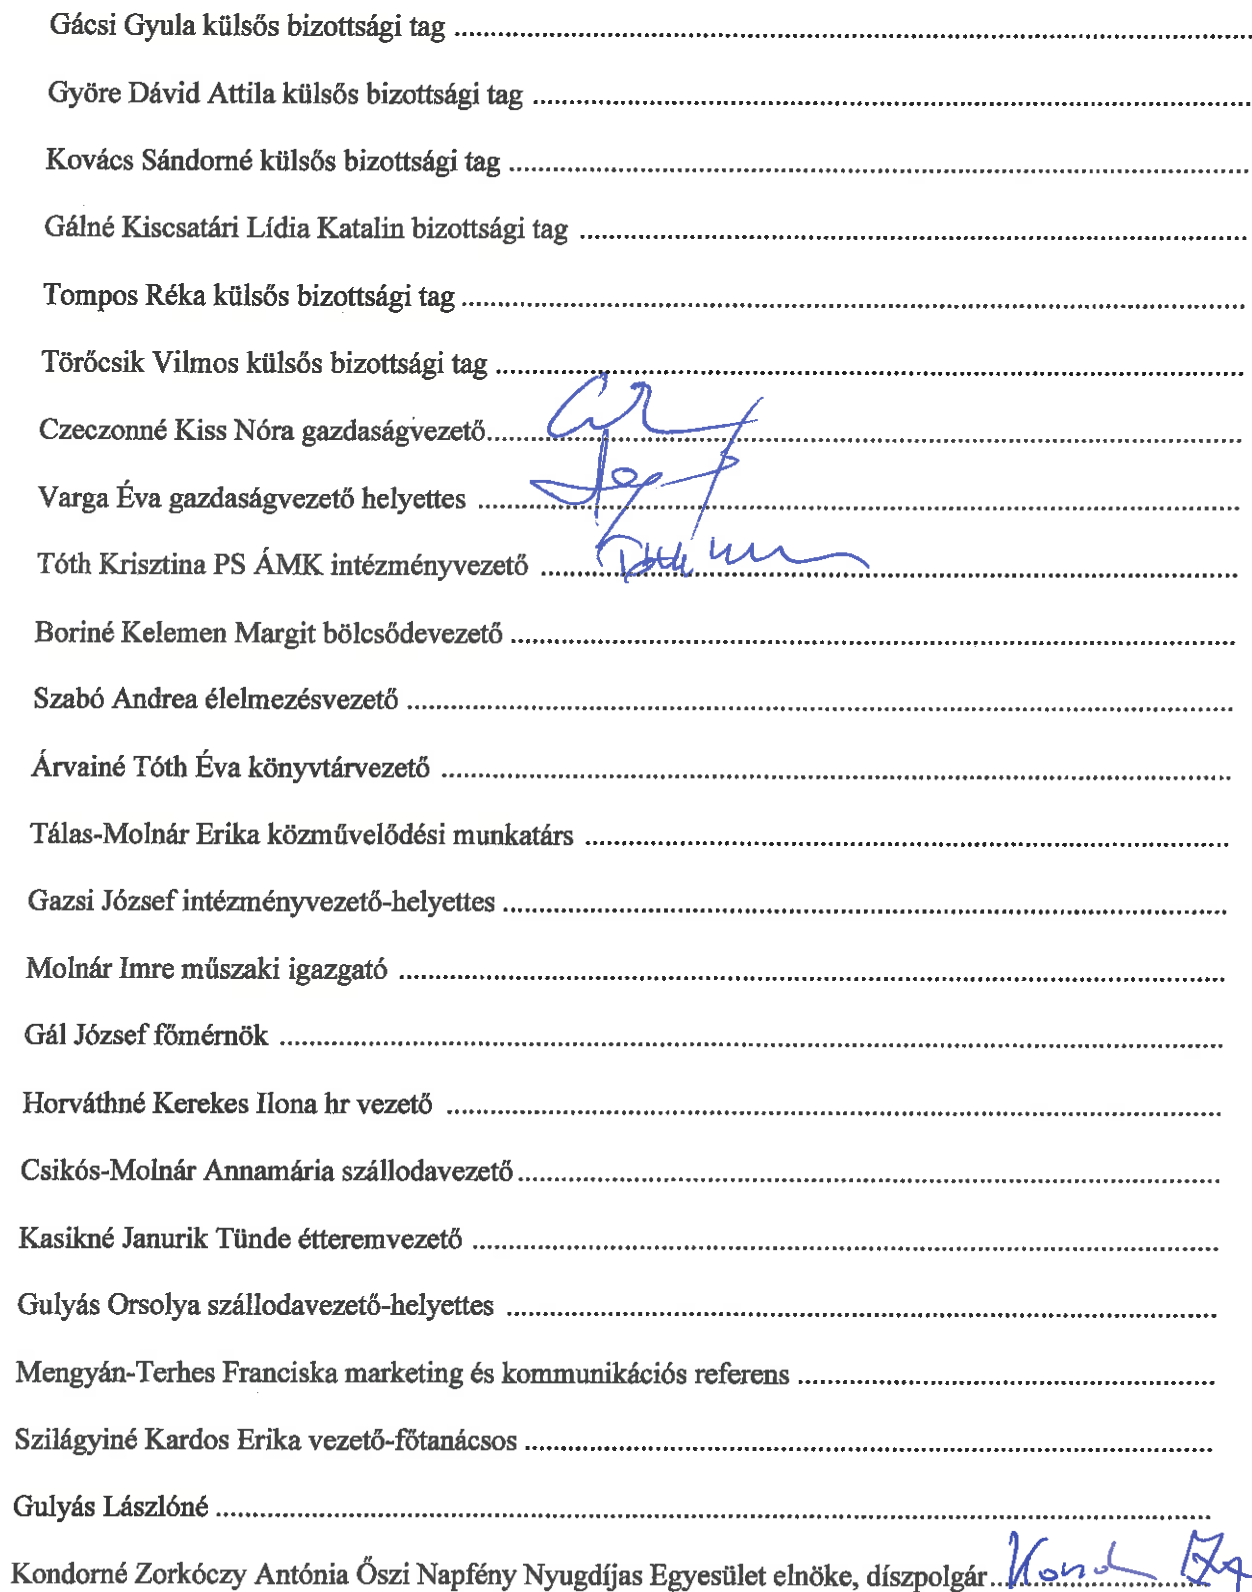 Gácsi Gyula külsős bizottsági tag ................................................
Györe Dávid Attila külsős bizottsági tag ................................................
Kovács Sándorné külsős bizottsági tag ................................................
Gálné Kiscsatári Lídia Katalin bizottsági tag ................................................
Tompos Réka külsős bizottsági tag ................................................
Törőcsik Vilmos külsős bizottsági tag ................................................
Czeczonné Kiss Nóra gazdaságvezető ................................................
Varga Éva gazdaságvezető helyettes ................................................
Tóth Krisztina PS ÁMK intézményvezető ................ Tóth
Boriné Kelemen Margit bölcsődevezető ................................................
Szabó Andrea élelmezésvezető ................................................
Árvainé Tóth Éva könyvtárvezető ................................................
Tálas-Molnár Erika közművelődési munkatárs ................................................
Gazsi József intézményvezető-helyettes ................................................
Molnár Imre műszaki igazgató ................................................
Gál József főmérnök ................................................
Horváthné Kerekes Ilona hr vezető ................................................
Csikós-Molnár Annamária szállodavezető ................................................
Kasikné Janurik Tünde étteremvezető ................................................
Gulyás Orsolya szállodavezető-helyettes ................................................
Mengyán-Terhes Franciska marketing és kommunikációs referens ................................................
Szilágyiné Kardos Erika vezető-főtanácsos ................................................
Gulyás Lászlóné ................................................
Kondorné Zorkóczy Antónia Őszi Napfény Nyugdíjas Egyesület elnöke, díszpolgár ................